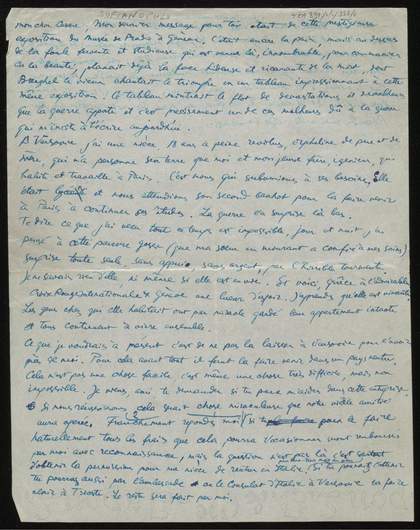 mon cher Carrà. Mon dernier message pour toi était de cette prestigieuse
exposition du Musée du Prado à Genève, c'était encore la paix, mais au dessus
de la foule fervente et studieuse qui est venue là, innombrable, pour communier
en la beauté, planait déjà la face hideuse et ricanante de la mort, dont
Breughel le vieux chantait le triomphe en un tableau impressionnant à cette
même exposition. Ce tableau montrait le flot de dévastations et de malheurs
que la guerre apporte et c'est précisément un de ces malheurs dû à la guerre
qui m'incite à t'écrire aujourd'hui.
A Varsovie, j'ai une nièce, 18 ans à peine révolus, orpheline de père et de
mère, qui n'a personne sur terre que moi et mon jeune frère, ingénieur, qui
habite et travaille à Paris. C'est nous qui subvenions à ses besoins, Elle
était Lycée et nous attendions son second bachot pour la faire venir
à Paris, à continuer ses études. La guerre l'a surprise là bas.
Te dire ce que j'ai vécu tout ce temps est impossible, jour et nuit, j'ai
pensé à cette pauvre gosse (que ma sœur en mourant a confié à mes soins)
surprise toute seule, sans appui, sans argent, par l'horrible tourmente.
Je ne savais rien d'elle, ni même si elle est vivante. Et voici, grâce à l'admirable
Croix Rouge internationale de Genève une lueur d'espoir. J'apprends qu'elle est vivante.
Les gens chez qui elle habitait ont par miracle gardé leur appartement intact
et tous continuent à vivre ensemble.
Ce que je voudrais à présent c'est de ne pas la laisser à Varsovie pour l'avoir
près de moi. Pour cela avant tout il faut la faire venir dans un pays neutre.
Cela n'est pas une chose facile, c'est même une chose très difficile mais non
impossible. Je viens, ami, te demander si tu peux m'aider dans cette entreprise.
Si nous réussissons cela serait chose miraculeuse que notre vieille amitié
aura opérée. Franchement réponds moi si tu peux le faire
naturellement tous les frais que cela pourra t'occasionner sont remboursés
par moi avec reconnaissance, mais la question n'est pas là c'est surtout
d'obtenir la permission pour ma nièce de rentrer en Italie. Si tu pouvais l'obtenir
tu pourras aussi par l'ambassade ou le Consulat d'Italie à Varsovie en faire
venir à Trieste. Le reste sera fait par moi.